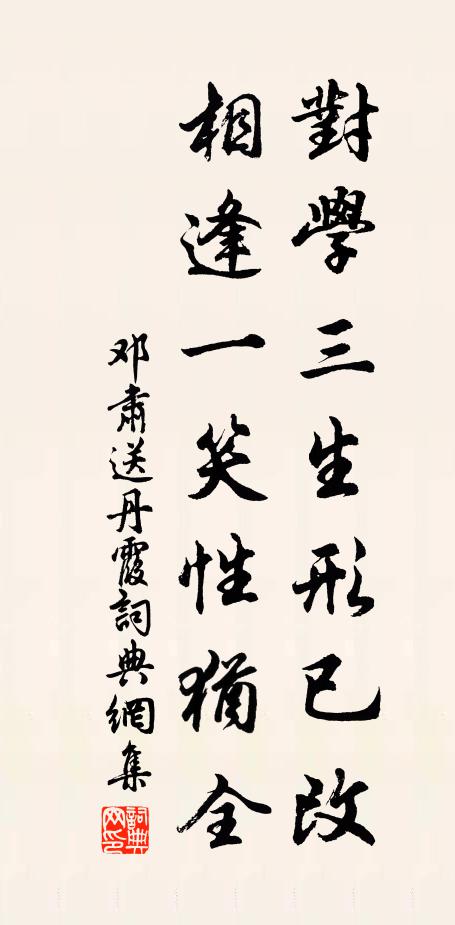 對學三生形已改
相逢一笑性猶全
邓肅送丹霞詞典網集
詞典網印